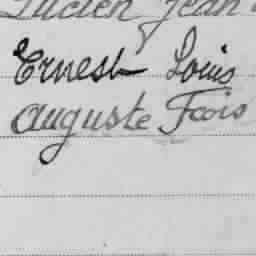 Lucien Jean
Ernest Louis
Auguste Fcois